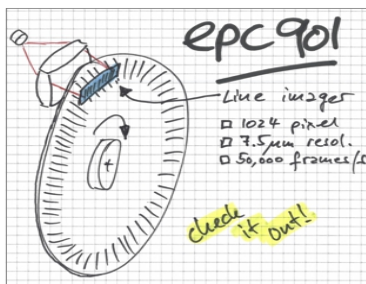 epc901
Line imager
1024 pixel
7.5µm resol.
50,000 frames/s
check
it
out!